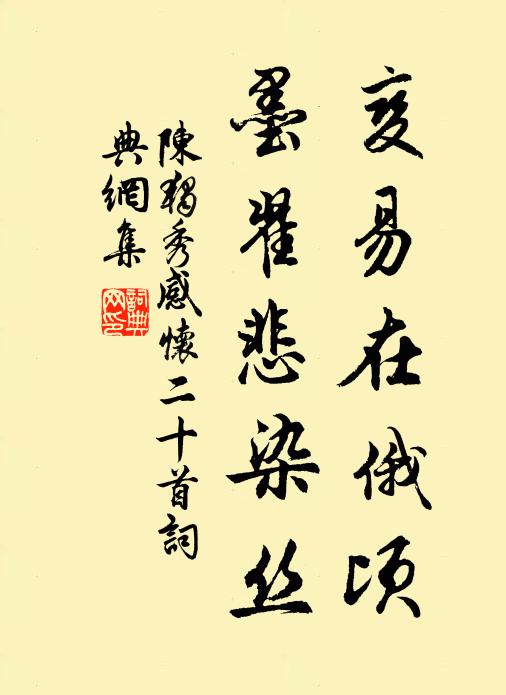 变易在俄顷
墨翟悲染丝
陳獨秀感懷二十首詞
典網集
詞典网印